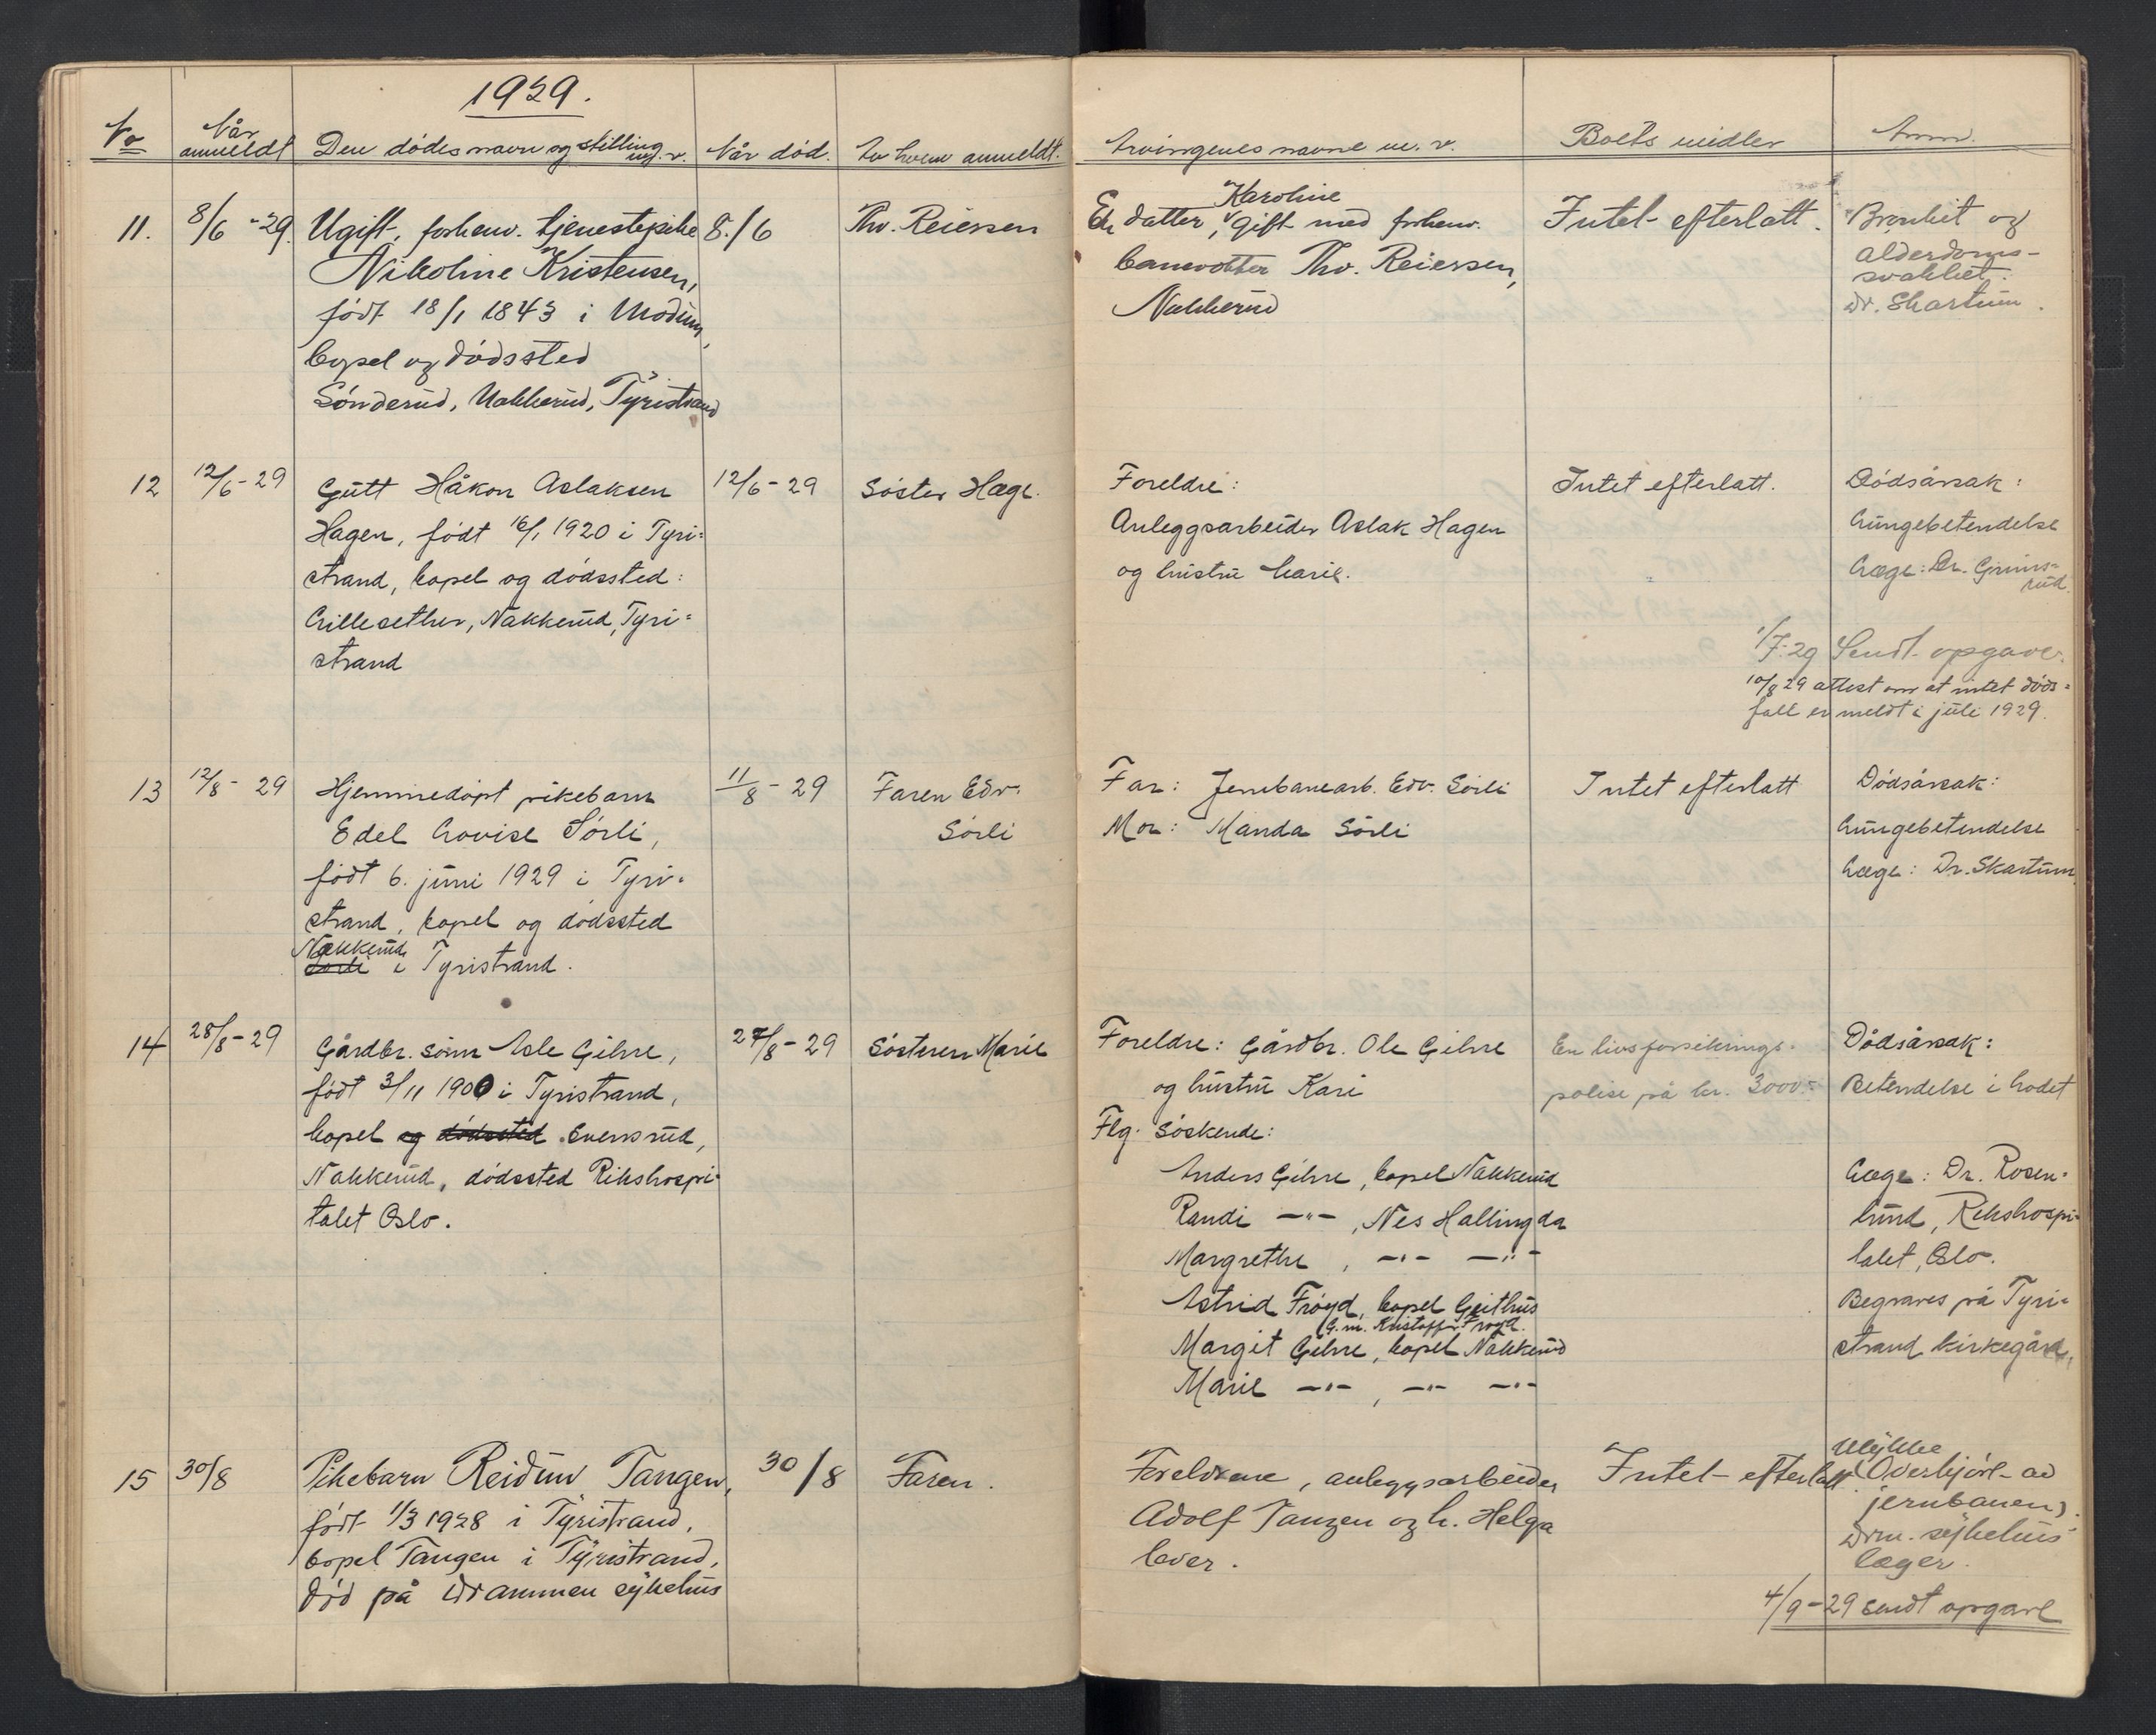 1929.
No
Når anmeldt
Den dødes navn og stilling m. v.
Når død.
Av hvem anmeldt.
Arvingenes navne m. v.
Boets midler
Anm.
11.
8/6 -29.
Ugift, forhenv. tjenestepike
Nikoline Kristensen,
født 18/1 1843 i Modum,
bopel og dødssted
Sønderud, Nakkerud, Tyristrand
8./6
Thv. Reiersen
Karoline
En datter, gift med forhenv.
banevokter Thv. Reiersen,
Nakkerud
Intet efterlatt.
Bronkit og
alderdoms-
svakhet.
Dr. Skartum.
12
12/6-29
Gutt Håkon Aslaksen
Hagen, født 16/1 1920 i Tyri=
strand, bopel og dødssted:
Lillesether, Nakkerud, Tyri=
strand
12/6-29
Søster Hage.
Foreldre:
Anleggsarbeider Aslak Hagen
og hustru Marie.
Intet efterlatt.
Dødsårsak:
Lungebetendelse
Læge: Dr. Grims=
rud.
1/7-29 Sendt opgave.
10/8 29 attest om at intet døds=
fall er meldt i juli 1929.
13
12/8- 29
Hjemmedøpt pikebarn
Edel Lovise Sørli,
født 6. juni 1929 i Tyri-
strand, bopel og dødssted
Nakkerud
Sørli i Tyristrand.
11/8 - 29
Faren Edv.
Sørli
Far: Jernbanearb. Edv. Sørli
Mor: Manda Sørli
Intet efterlatt
Dødsårsak:
Lungebetendelse
Læge: Dr. Skartum.
14
28/8-29
Gårdbr. sønn Asle Gihre,
født 3/11 1900 i Tyristrand,
bopel og dødssted Evensrud,
Nakkerud, dødssted Rikshospi-
talet Oslo.
27/8-29
Søsteren Marie
Foreldre: Gårdbr. Ole Gihre
og hustru Kari
Flg. Søskende:
Anders Gihre, bopel Nakkerud
Randi -"-, Nes Hallingda
Margrethe, -"- -"-
Astrid Frøyd, bopel Geithus
(g. m. Kristoffer Frøyd.
Margit Gihre, bopel Nakkerud
Marie -"-, -"- -"-
En livsforsikrings-
polise på kr. 3000.-
Dødsårsak:
Betendelse i hodet
Læge: Dr. Rosen-
lund, Rikshospi=
talet, Oslo.
Begraves på Tyri=
strand kirkegård.
15
30/8
Pikebarn Reidun Tangen,
født 1/3 1928 i Tyristrand,
bopel Tangen i Tyristrand,
død på Drammen sykehus
30/8
Faren.
Foreldrene, anleggsarbeider
Adolf Tangen og h. Helga
lever.
Intet efterlatt.
Ulykke
(Overkjørt av
jernbanen).
Drm. sykehus
læger.
4/9-29 sendt opgave